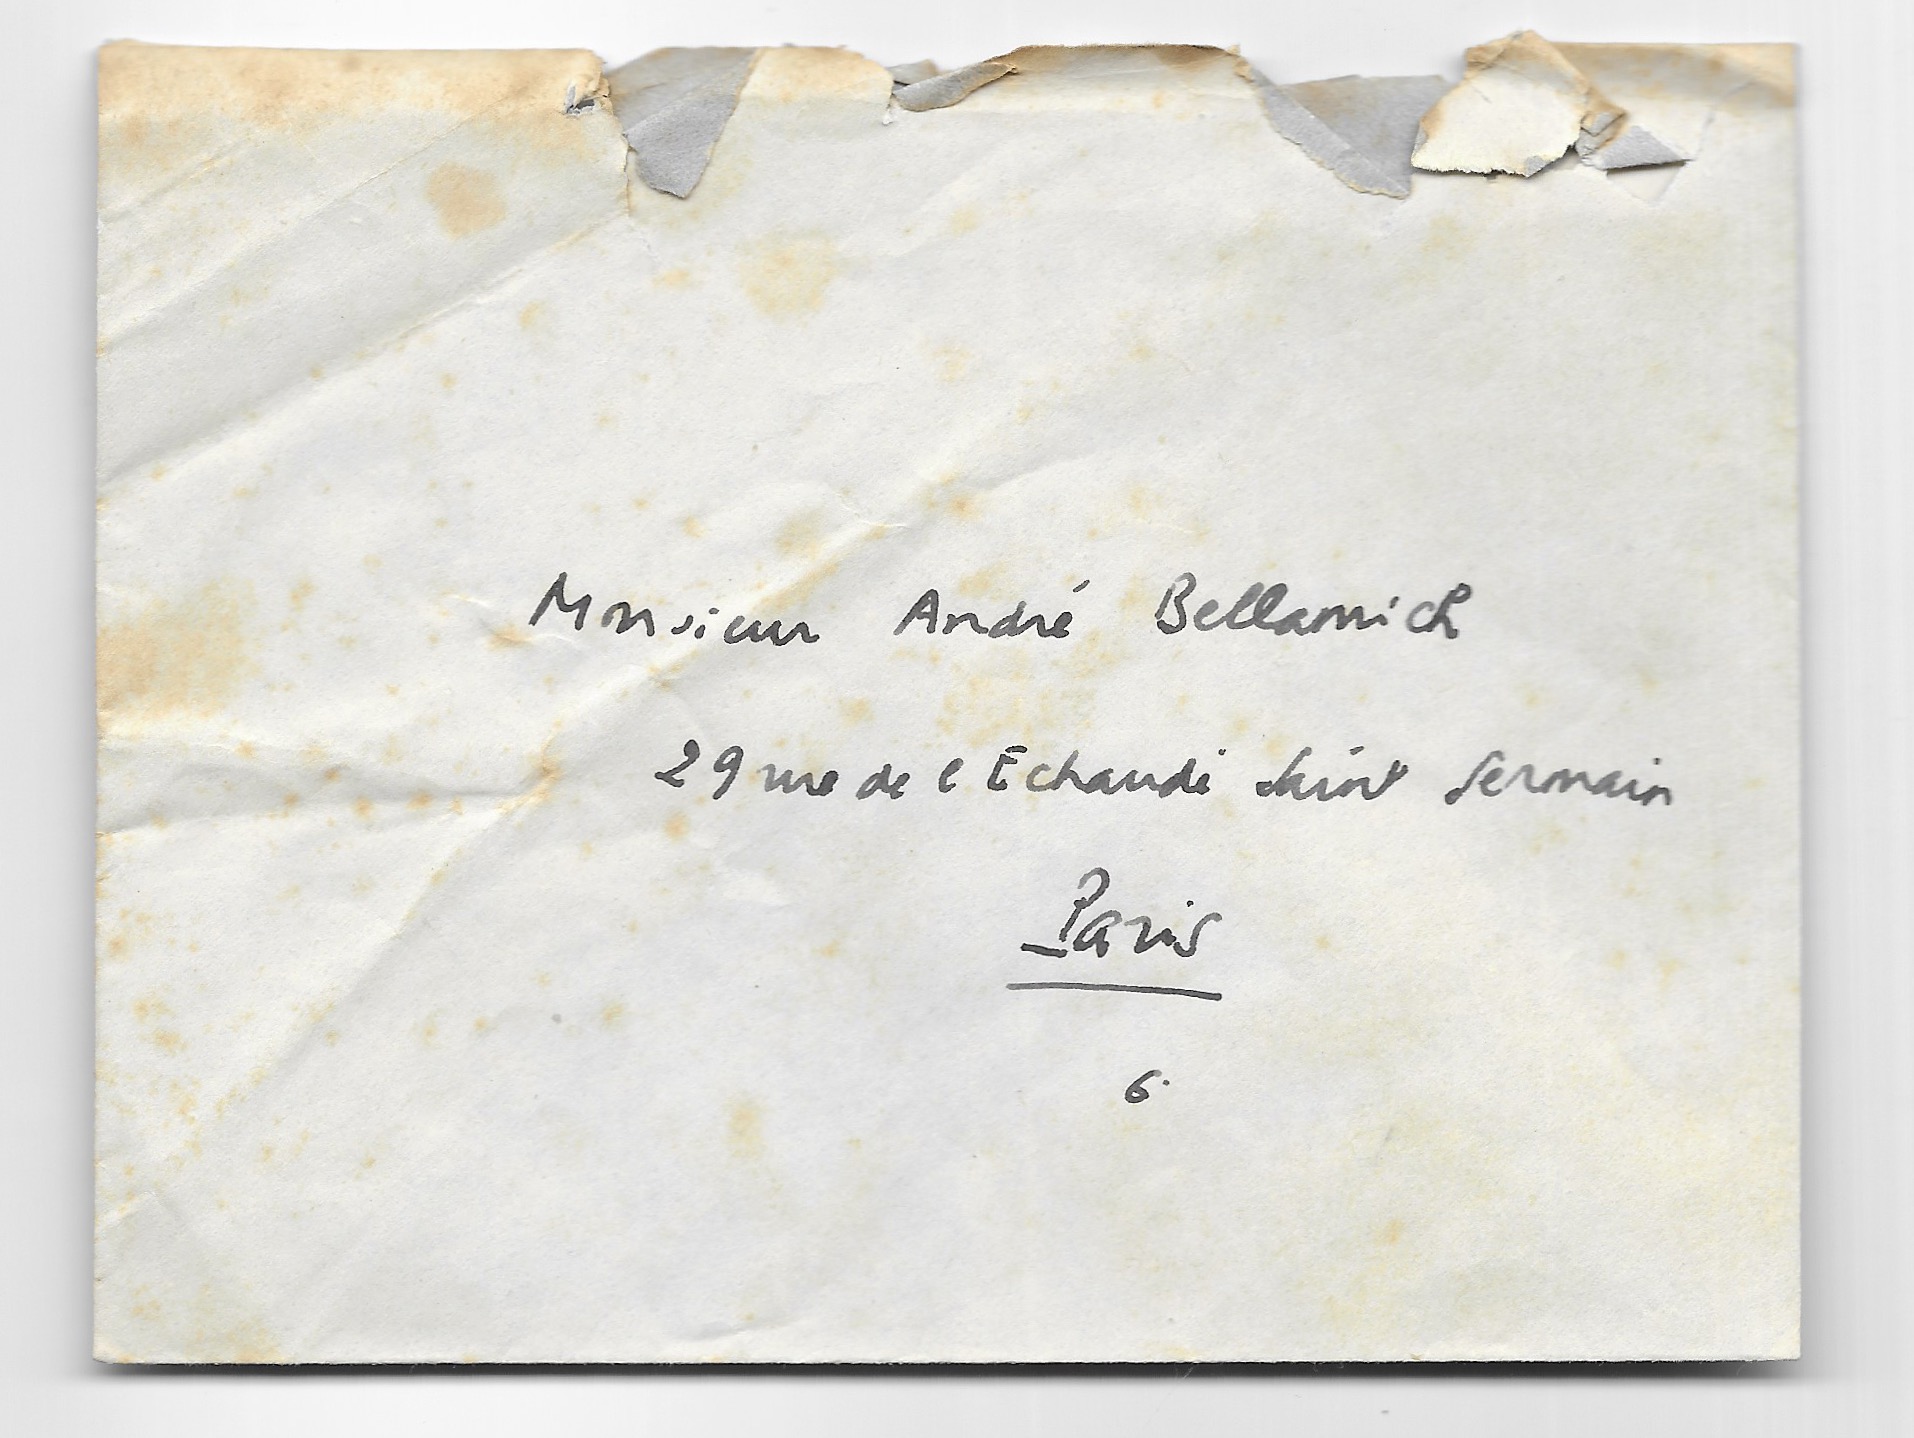 Monsieur André Bellamich
29 rue de l'Echaudé Saint Germain
Paris
6.